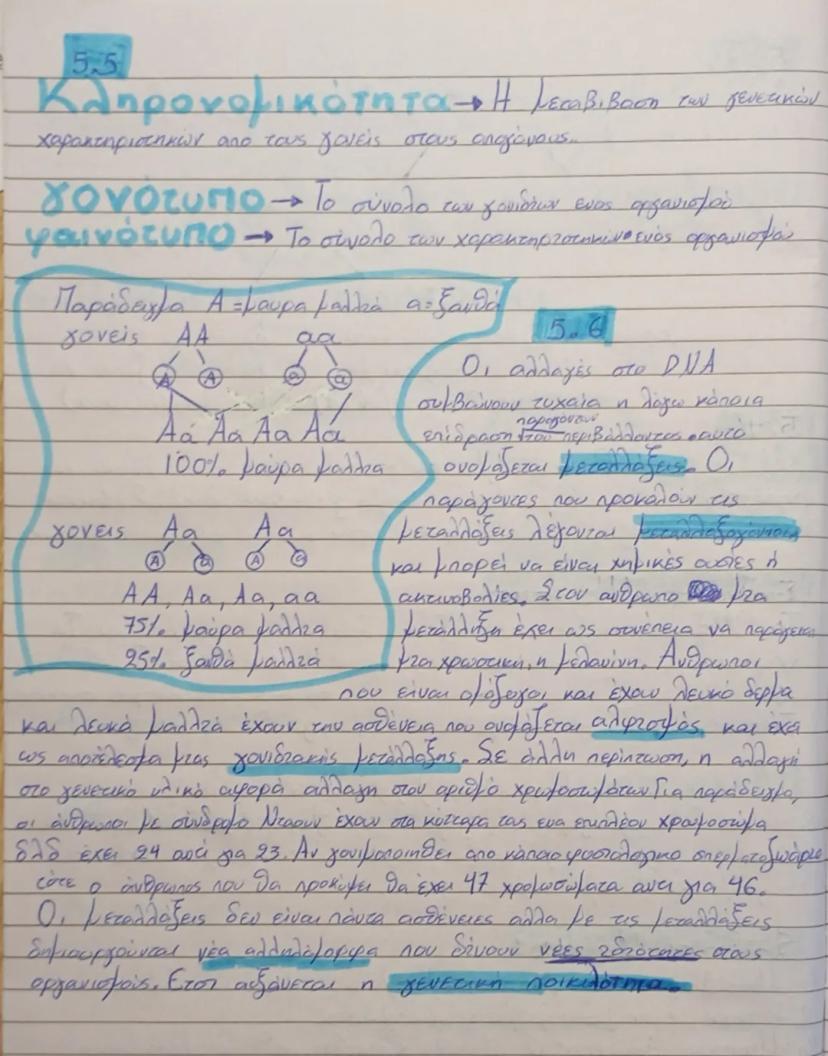 5.5
Κληρονομικότητα → Η μεταβιβαση των γενετικών
χαρακτηριστηκών απο τους γονείς στους απογόνους.
γονότυπο → Το σύνολο των γονιδίων ενος οργανισμού
φαινότυπο → Το σύνολο των χαρακτηριστηκών ενός οργανισμού
Παράδειγμα Α = μαυρα μαλλιά α = ξανθά
γονείς ΑΑ αα
Α Α α α
Αα Αα Αα Αα
100% μαύρα μαλλια
γονεις Αα Αα
Α α Α α
ΑΑ, Αα, Αα, αα
75% μαύρα μαλλια
25% ξανθά μαλλιά
5.6
Οι αλλαγές στο DNA
συμβαίνουν τυχαία η λόγω κάποια
παραγόντων
επίδραση του περιβάλλοντος. αυτό
ονομάζεται μεταλλάξεις. Οι
παράγοντες που προκαλούν τις
μεταλλάξεις λέγονται μεταλλαξογόνοι
και μπορεί να είναι χημικές ουσίες ή
ακτινοβολίες. Στον άνθρωπο μια
μετάλλαξη έχει ως συνέπεια να παράγεται
μια χρωστική, η μελανίνη. Ανθρωποι
που είναι ομόζυγοι και έχουν λευκό δερμα
και λευκά μαλλιά έχουν την ασθένεια που ονομάζεται αλφισμός και εχει
ως αποτέλεσμα μιας γονιδιακής μετάλλαξης. Σε άλλη περίπτωση, η αλλαγή
στο γενετικό υλικό αφορά αλλαγη στον αριθμό χρωμοσωμάτων Για παράδειγμα,
οι άνθρωποι με σύνδρομο Νταουν έχουν στα κύτταρα τας ενα επιπλέον χρωμοσώμα
δλδ έχει 24 αντί για 23. Αν γονιμοποιηθει απο κάποιο φυσιολογικο σπερματοζωάριο
τότε ο άνθρωπος που θα προκύψει θα έχει 47 χρομωσώματα αντι για 46.
Οι μεταλλάξεις δεν είναι πάντα ασθένειες αλλα με τις μεταλλάξεις
δημιουργούνται νέα αλληλόμορφα που δίνουν νέες ιδιότητες στους
οργανισμούς. Ετσι αυξάνεται η γενετική ποικιλότητα.